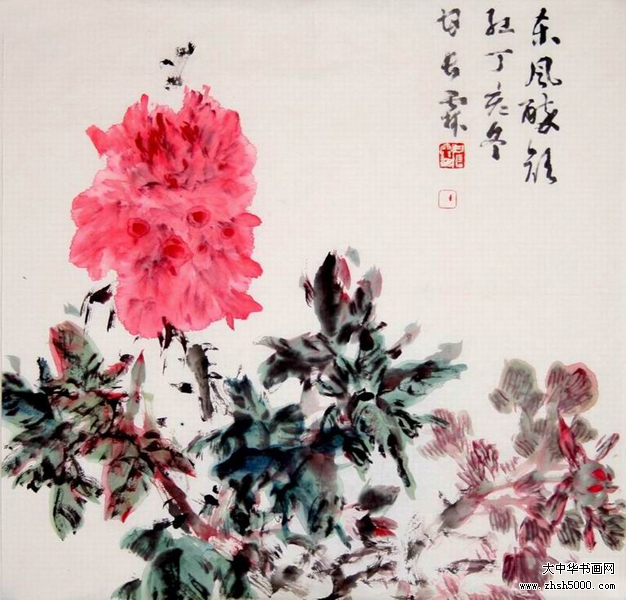 东风
红丁亥冬
长霖
大中华书画网
www.zhsh5000.com